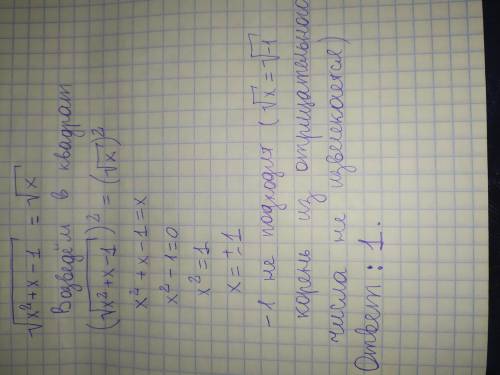 √(x²+x-1) = √x
Возведём в квадрат
(√(x²+x-1))² = (√x)²
x²+x-1=x
x²-1=0
x²=1
x=±1
-1 не подходит (√x=√-1
корень из отрицательного
числа не извлекается)
Ответ: 1.